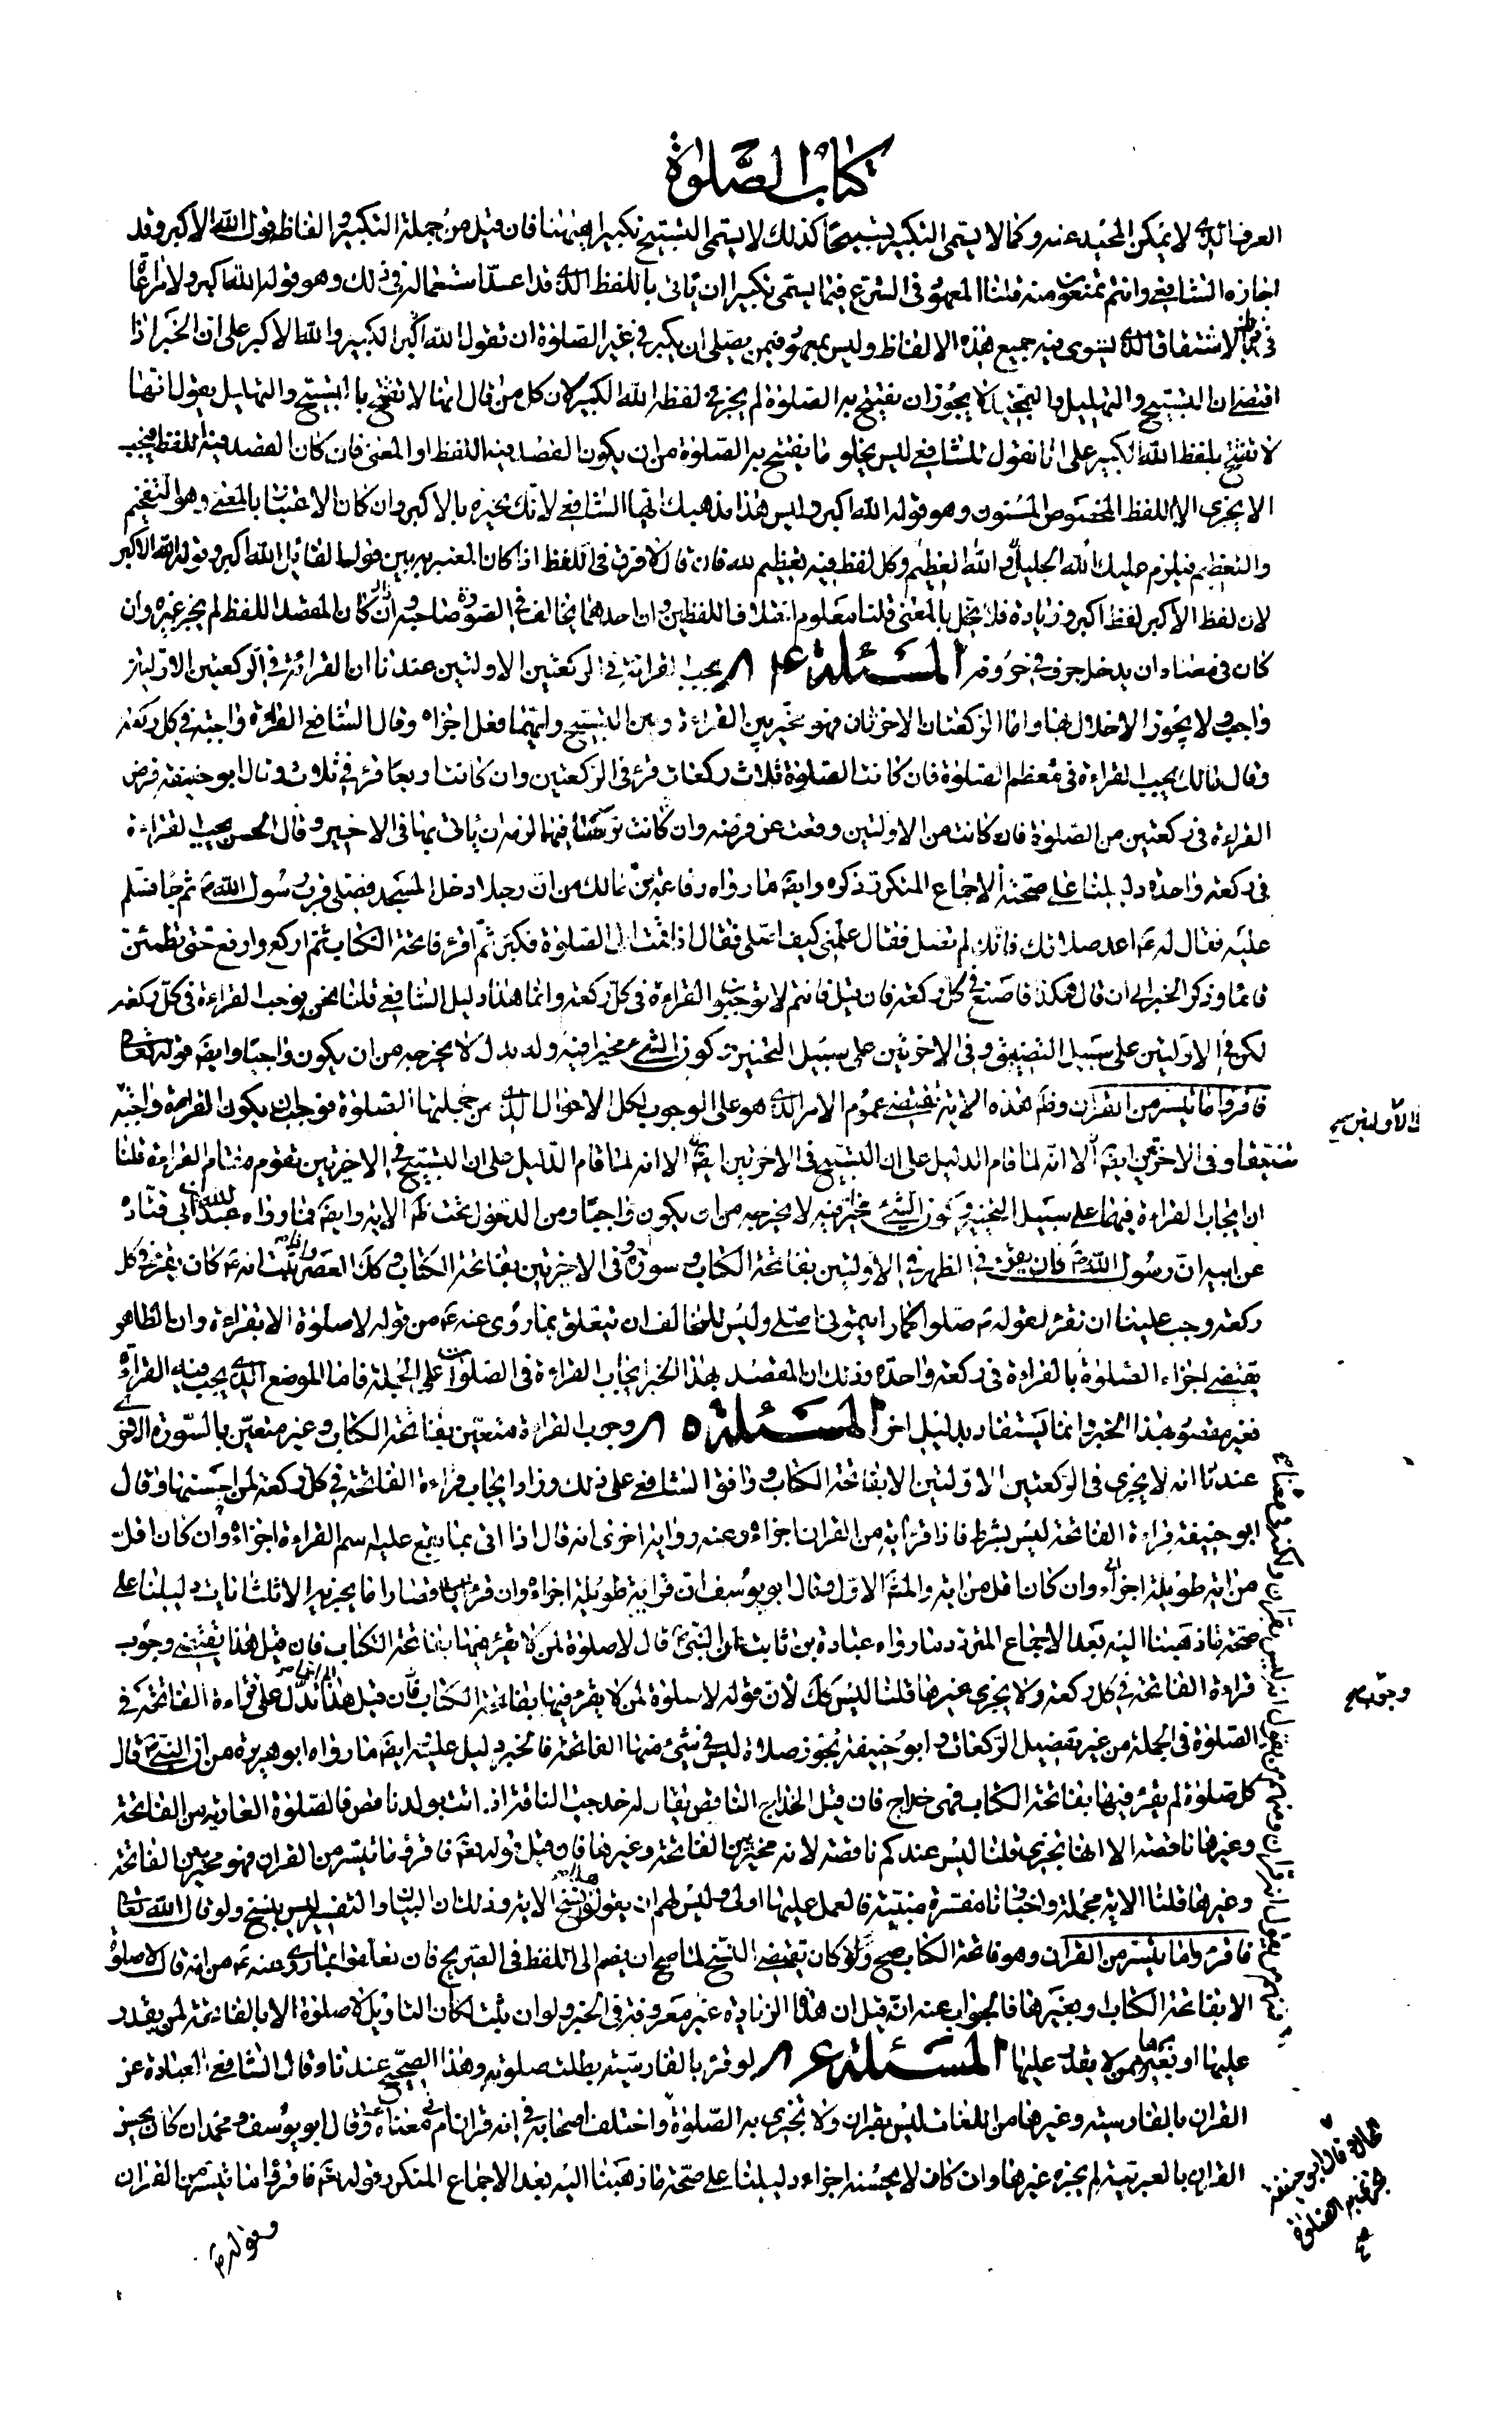 كتاب الصلوة
العرف الذي لا يمكن المحيد عنه وكما لا يسمى التكبير تسبيحا كذلك لا يسمى التسبيح تكبيرا فان قيل من جملة التكبير والفاظه قول الله الاكبر وقد
اجازه الشافعي وانتم تمنعون منه قلنا المعهود في الشرع فيما يسمى تكبيرا ان ياتي باللفظ الذي قد اعتيد استعماله في ذلك وهو قوله الله اكبر ولا
الاشتقاق الذي يستوى فيه جميع هذه الالفاظ وليس بمعهود فيمن يصلى ان يكبر في غير الصلوة ان تقول الله اكبر الكبير والله الاكبر على ان الخبر اذا
اقتضى ان التسبيح والتهليل والتحميد لا يجوز ان يفتتح به الصلوة لم يجز لفظه الله الكبير لان كل من قال انها لا تفتتح با التسبيح والتهليل يقول انها
لا تفتتح بلفظ الله الكبير على انا نقول للشافعي ليس يخلو ما يفتتح به الصلوة من ان يكون القصد فيه اللفظ او المعنى فان كان القصد فيه اللفظ فيجب
الا يجزى الا اللفظ المخصوص المسنون وهو قوله الله اكبر وليس هذا مذهبك ايها الشافعي لانك تجيزه بالاكبر وان كان الاعتبار بالمعنى وهو التفخيم
والتعظيم فيلزم عليك الله الجليل والله العظيم وكل لفظ فيه تعظيم لله فان قال لا فرق في اللفظ اذا كان المعتبر به بين قول القائل الله اكبر وقوله الله الاكبر
لان لفظ الاكبر لفظ اكبر وزيادة فلا يخل بالمعنى قلنا معلوم اختلاف اللفظين وان احدهما يخالف في الصورة صاحبه وان كان المقصد اللفظ لم يجز غيره وان
كان في معناه ان يدخل حرف في حروفه المسئلة ٨٤ يجب القراءة في الركعتين الاولتين عندنا ان القراءة في الركعتين الاولتين
واجبة ولا يجوز الاخلال بها واما الركعتان الاخرتان فهو مخير بين القراءة وبين التسبيح وايهما فعل اجزاه وقال الشافعي القراءة واجبة في كل ركعة
وقال مالك يجب القراءة في معظم الصلوة فان كانت الصلوة ثلاث ركعات قرء في الركعتين وان كانت اربعا قرء في ثلاث وقال ابو حنيفة فرض
القراءة في ركعتين من الصلوة فان كانت من الاولتين وقعت عن فرضه وان كانت فيهما لزمه ان ياتى بها في الاخيرين وقال الحسن يجب القراءة
في ركعة واحدة دليلنا على صحته الاجماع المتكرر ذكره وايضا ما رواه رفاعة بن مالك من ان رجلا دخل المسجد فصلى قرب رسول الله ص ثم جاء فسلم
عليه فقال له ع اعد صلاتك فانك لم تصل فقال علمني كيف اصلى فقال اذا قمت الى الصلوة فكبر ثم اقرء فاتحة الكتاب ثم اركع وارفع حتى تطمئن
قائما وذكر الخبر الى ان قال هكذا فاصنع في كل ركعة فان قيل فانتم لا توجبون القراءة في كل ركعة وانما هذا دليل الشافعي قلنا نحن نوجب القراءة في كل ركعة
لكن في الاولتين على سبيل التضييق وفي الاخرتين على سبيل التخيير وكون الشيء مخيرا فيه وله بدل لا يخرجه من ان يكون واجبا وايضا قوله تعالى
فاقرؤا ما تيسر من القران وظاهر هذه الاية يقتضى عموم الامر الذي هو على الوجوب لكل الاحوال التي من جملتها الصلوة فوجب ان يكون القراءة واجبة
الاولتين
تضييقا وفي الاخرتين ايضا الا انه لما قام الدليل على ان التسبيح في الاخرتين ايضا الا انه لما قام الدليل على ان التسبيح في الاخيرتين تقوم مقام القراءة قلنا
ان ايجاب القراءة فيهما على سبيل التخيير وكون الشيء مخير فيه لا يخرجه من ان يكون واجبا ومن الدخول تحت ظاهر الاية وايضا فما رواه عبد الله بن ابي قتادة
عن ابيه ان رسول الله ص كان يقرء في الظهر في الاولتين بفاتحة الكتاب وسورة وفي الاخرتين بفاتحة الكتاب وكذا العصر واذا ثبت انه ع كان يقرء في كل
ركعة وجب علينا ان نقرء لقوله ع صلوا كما رايتموني اصلى وليس للمخالف ان يتعلق بما روى عنه ع من قوله لا صلوة الا بقراءة وان الظاهر
يقتضى اجزاء الصلوة بالقراءة في ركعة واحدة وذلك ان المقصد بهذا الخبر ايجاب القراءة في الصلوات على الجملة فاما الموضع الذي يجب فيه القراءة
فغير مقصود بهذا الخبر وانما يستفاد بدليل اخر المسئلة ٨٥ وجوب القراءة متعين بفاتحة الكتاب وغير متعين بالسورة الاخرى
عندنا انه لا يجزى في الركعتين الاولتين الا بفاتحة الكتاب ووافق الشافعي على ذلك وزاد ايجاب قراءة الفاتحة في كل ركعة لمن احسنها وقال
ابو حنيفة قراءة الفاتحة ليس بشرط فاذا قرء اية من القران اجزاه وعنه رواية اخرى انه قال اذا اتى بما يقع عليه اسم القراءة اجزاه وان كان اقل
من اية طويلة اجزاه وان كان اقل من اية والمتم الاول وقال ابو يوسف ان قرء اية طويلة اجزاه وان قرء قصارا ما يجزيه الا ثلث ايات دليلنا على
صحة ما ذهبنا اليه بعد الاجماع المتردد ما رواه عبادة بن ثابت عن النبي ص قال لا صلوة لمن لا يقرء فيها بفاتحة الكتاب فان قيل هذا يقتضى وجوب
قراءة الفاتحة في كل ركعة ولا يجزى غيرها قلنا ليس كك لان قوله لا صلوة لمن لا يقرء فيها بفاتحة الكتاب فان قيل هذا انما يدل على قراءة الفاتحة في
وجوب
الصلوة في الجملة من غير تفصيل الركعات وابو حنيفة يجوز صلاة ليس في شيء منها الفاتحة فالخبر دليل عليه ايضا ما رواه ابو هريرة من ان النبي ص قال
كل صلوة لم يقرء فيها بفاتحة الكتاب فهي خداج فان قيل الخداج الناقص يقال خدجت الناقة اذا اتت بولد ناقص فالصلوة العارية من الفاتحة
وغيرها ناقصة الا انها تجزى قلنا ليس عندكم ناقصة لانه مخير بين الفاتحة وغيرها فان قيل قوله تعالى فاقرؤا ما تيسر من القران فهو مخير بين الفاتحة
وغيرها قلنا الاية مجملة واخبارنا مفسرة مبينة فالعمل عليها اولى وليس لهم ان يقولوا هذا نسخ الاية وذلك ان البيان والتفسير ليس بنسخ ولو قال الله تعالى
فاقرؤا ما تيسر من القران وهو فاتحة الكتاب صح ولو كان يقتضى النسخ لما صح ان يضم الى اللفظ في الصريح فان تعلقوا بما روى عنه ع من انه قال لا صلوة
الا بفاتحة الكتاب او بغيرها فالجواب عنه انه قيل ان هذه الزيادة غير معروفة في الخبر ولو ان ثبت لكان التاويل لا صلوة الا بالفاتحة لمن يقدر
عليها او بغيرها لمن لا يقدر عليها المسئلة ٨٦ لو قرء بالفارسية بطلت صلوته وهذا الصحيح عندنا وقال الشافعي العبادة عن
القران بالفارسية وغيرها من اللغات ليس بقران ولا تجزى به الصلوة واختلف اصحابه في انه قران ام في معناه وقال ابو يوسف ومحمد ان كان يحسن
القران بالعربية لم يجزه غيرها وان كان لا يحسنه اجزاه دليلنا على صحة ما ذهبنا اليه بعد الاجماع المتكرر قوله تعالى فاقرؤا ما تيسر من القران
وقوله ع